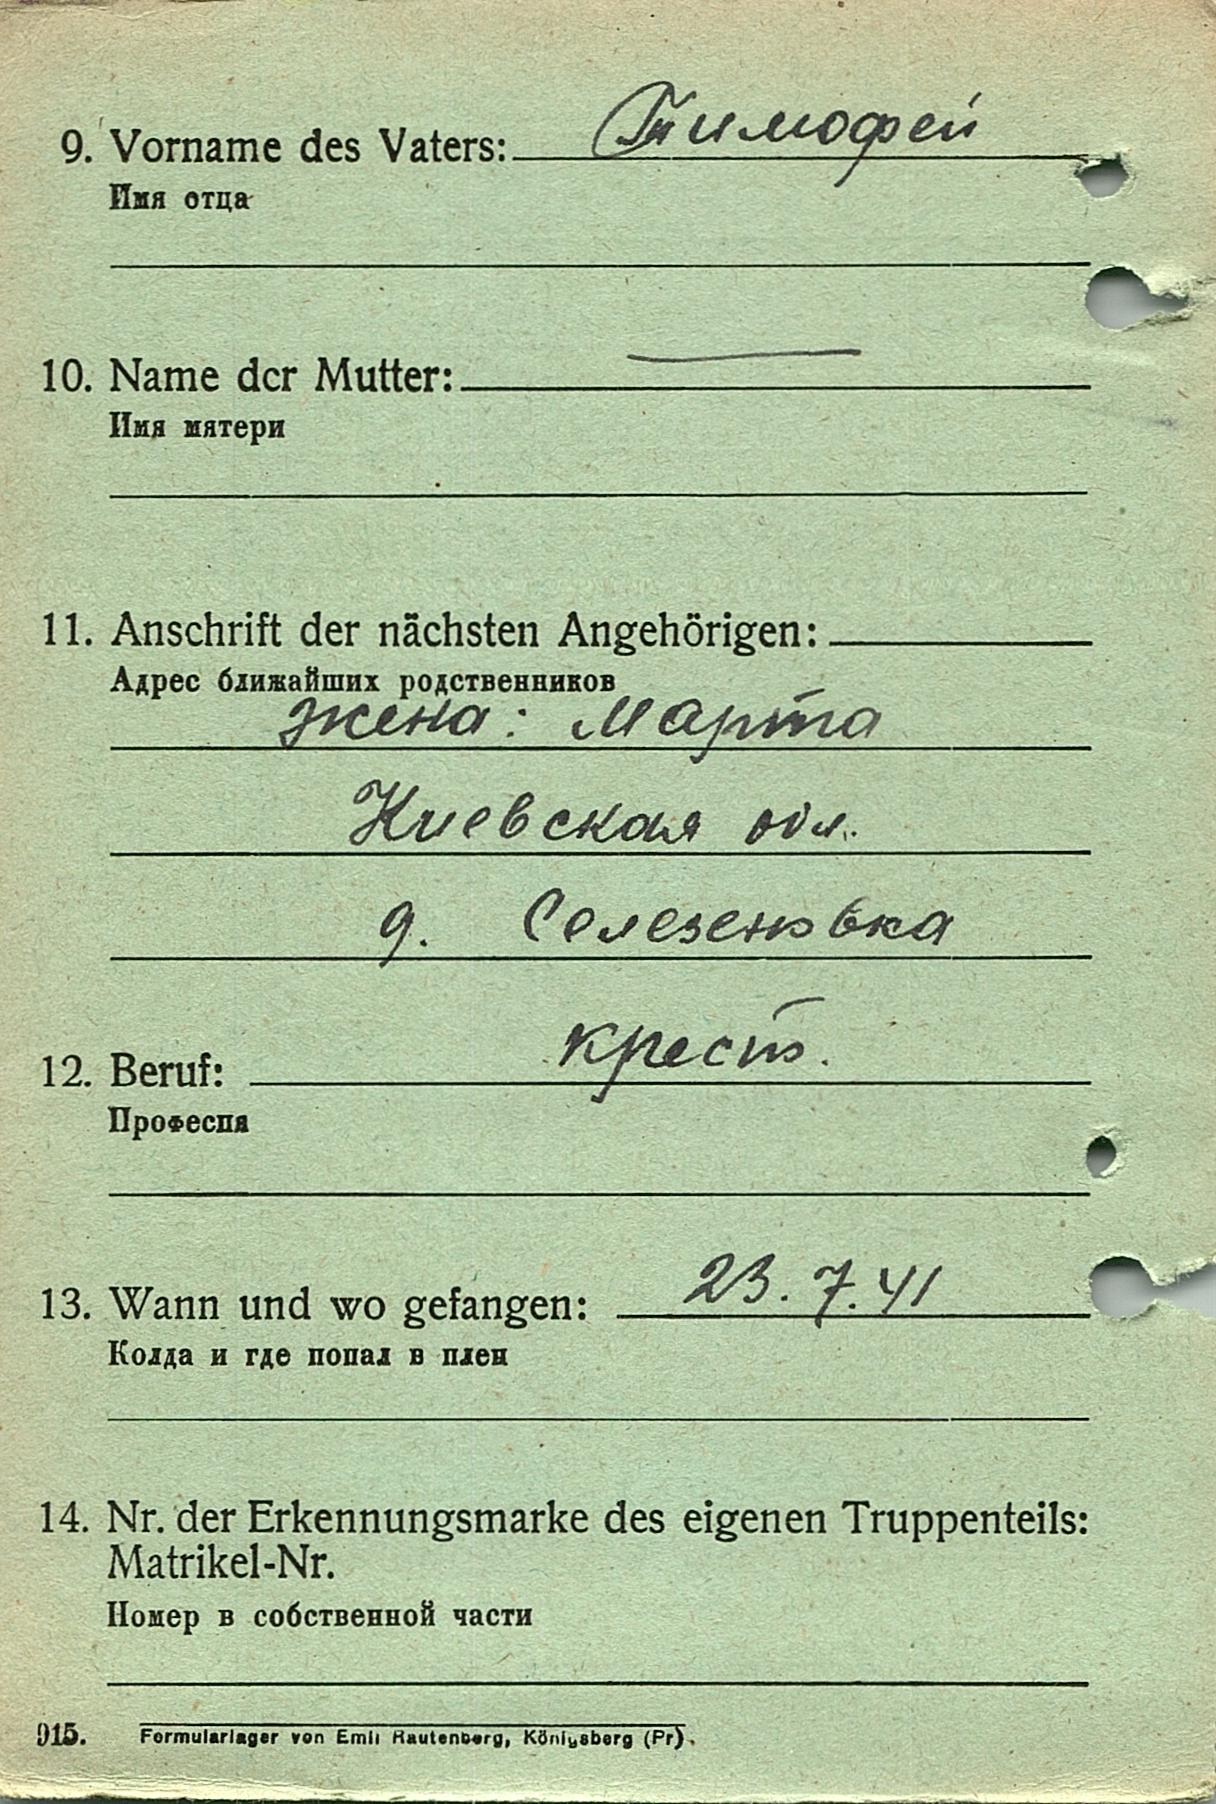 9. Vorname des Vaters: Тимофей
Имя отца
10. Name der Mutter: —
Имя мятери
11. Anschrift der nächsten Angehörigen:
Адрес ближайших родственников
жена: Марта
Киевская обл.
д. Селезеновка
12. Beruf: крест.
Професпя
13. Wann und wo gefangen: 23.7.41
Колда и где попал в плен
14. Nr. der Erkennungsmarke des eigenen Truppenteils:
Matrikel-Nr.
Номер в собственной части
915. Formularlager von Emil Rautenberg, Königsberg (Pr).